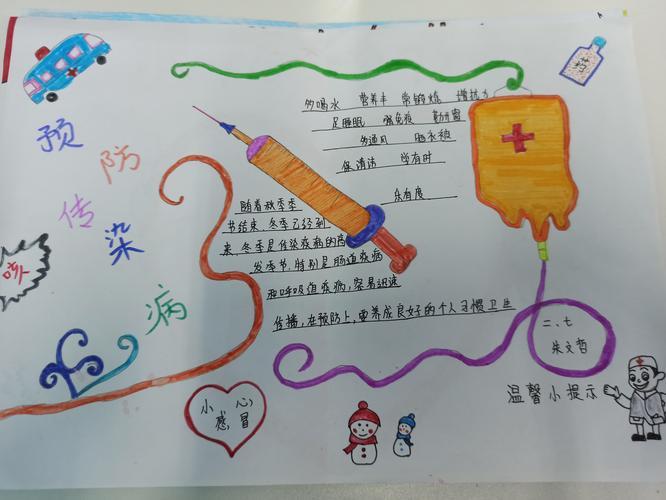 预防传染病
咳
多喝水 营养丰 常锻炼 增抗力
足睡眠 强免疫 勤开窗
多通风 晒衣被
保清洁 学有时
乐有度
随着秋季季
节结束、冬季已经到
来、冬季是传染疾病的高
发季节,特别是肠道疾病
和呼吸道疾病,容易迅速
传播,在预防上,要养成良好的个人习惯卫生
二、七
朱文哲
温馨小提示
小心
感冒